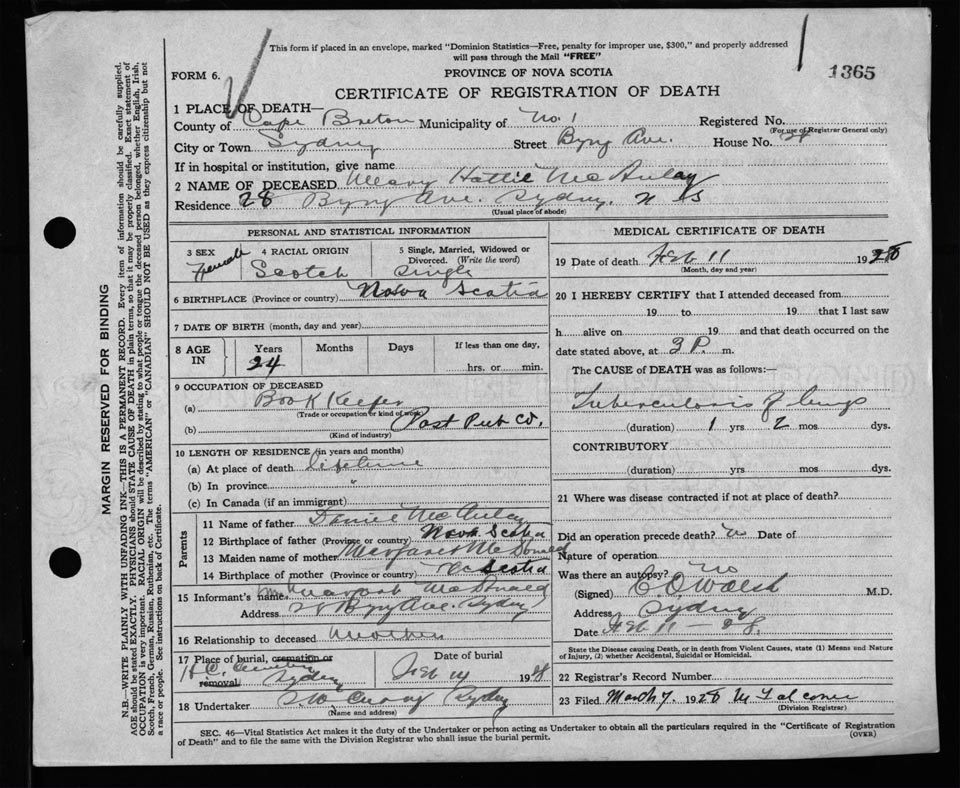 This form if placed in an envelope, marked "Dominion Statistics—Free, penalty for improper use, $300," and properly addressed
will pass through the Mail "FREE"
FORM 6.
PROVINCE OF NOVA SCOTIA
1365
CERTIFICATE OF REGISTRATION OF DEATH
1 PLACE OF DEATH—
County of Cape Breton Municipality of No. 1 Registered No.
(For use of Registrar General only)
City or Town Sydney Street Byng Ave. House No. 28
If in hospital or institution, give name
2 NAME OF DECEASED Mary Hattie McAulay
Residence 28 Byng Ave. Sydney, N S
(Usual place of abode)
PERSONAL AND STATISTICAL INFORMATION
3 SEX Female
4 RACIAL ORIGIN Scotch
5 Single, Married, Widowed or Divorced. (Write the word) Single
6 BIRTHPLACE (Province or country) Nova Scotia
7 DATE OF BIRTH (month, day and year)
8 AGE IN Years 24 Months Days If less than one day, hrs. or min.
9 OCCUPATION OF DECEASED
(a) Book Keeper
(Trade or occupation or kind of work)
(b) Post Pub Co.
(Kind of industry)
10 LENGTH OF RESIDENCE (in years and months)
(a) At place of death lifetime
(b) In province "
(c) In Canada (if an immigrant)
Parents
11 Name of father Daniel McAulay
12 Birthplace of father (Province or country) Nova Scotia
13 Maiden name of mother Margaret McDonald
14 Birthplace of mother (Province or country) N Scotia
15 Informant's name Margaret McDonald
Address 28 Byng Ave. Sydney
16 Relationship to deceased Mother
17 Place of burial, cremation or removal H.C. Cemetery Sydney
Date of burial Feb 14 1928
18 Undertaker Sydney
(Name and address)
MEDICAL CERTIFICATE OF DEATH
19 Date of death Feb 11 1928
(Month, day and year)
20 I HEREBY CERTIFY that I attended deceased from
19 to 19 that I last saw
h alive on 19 and that death occurred on
date stated above, at 3 P. m.
The CAUSE of DEATH was as follows:—
Tuberculosis of lungs
(duration) 1 yrs 2 mos dys.
CONTRIBUTORY
(duration) yrs mos dys.
21 Where was disease contracted if not at place of death?
Did an operation precede death? No Date of
Nature of operation
Was there an autopsy? No
(Signed) Walsh M.D.
Address Sydney
Date Feb 11 - 28.
State the Disease causing Death, or in death from Violent Causes, state (1) Means and Nature
of Injury, (2) whether Accidental, Suicidal or Homicidal.
22 Registrar's Record Number
23 Filed March 7. 1928 M Falconer
(Division Registrar)
SEC. 46—Vital Statistics Act makes it the duty of the Undertaker or person acting as Undertaker to obtain all the particulars required in the "Certificate of Registration
of Death" and to file the same with the Division Registrar who shall issue the burial permit.
(OVER)
MARGIN RESERVED FOR BINDING
N.B.—WRITE PLAINLY WITH UNFADING INK—THIS IS A PERMANENT RECORD. Every item of information should be carefully supplied.
AGE should be stated EXACTLY. PHYSICIANS should STATE CAUSE OF DEATH in plain terms, so that it may be properly classified. Exact statement of
OCCUPATION is very important. RACIAL ORIGIN will be described by stating to what people or tongue the deceased person belonged, whether English, Irish,
Scotch, French, German, Russian, Ruthenian, etc. The terms "AMERICAN" or "CANADIAN" SHOULD NOT BE USED as they express citizenship but not
a race or people. See instructions on back of Certificate.